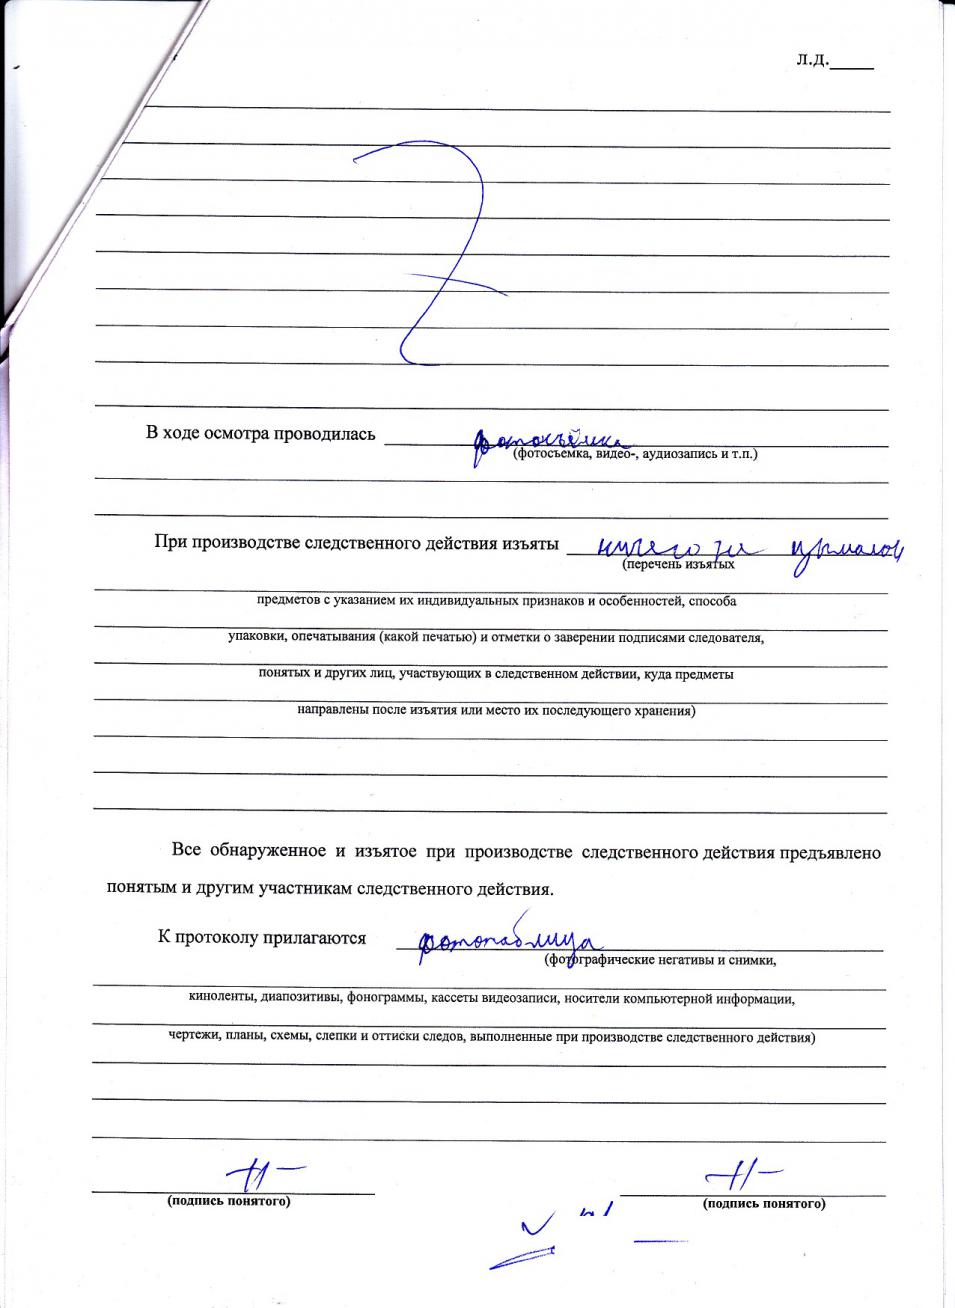 Л.Д.
В ходе осмотра проводилась фотосъёмка
(фотосъемка, видео-, аудиозапись и т.п.)
При производстве следственного действия изъяты ничего не
(перечень изъятых
предметов с указанием их индивидуальных признаков и особенностей, способа
упаковки, опечатывания (какой печатью) и отметки о заверении подписями следователя,
понятых и других лиц, участвующих в следственном действии, куда предметы
направлены после изъятия или место их последующего хранения)
Все обнаруженное и изъятое при производстве следственного действия предъявлено
понятым и другим участникам следственного действия.
К протоколу прилагаются фототаблица
(фотографические негативы и снимки,
киноленты, диапозитивы, фонограммы, кассеты видеозаписи, носители компьютерной информации,
чертежи, планы, схемы, слепки и оттиски следов, выполненные при производстве следственного действия)
(подпись понятого) (подпись понятого)